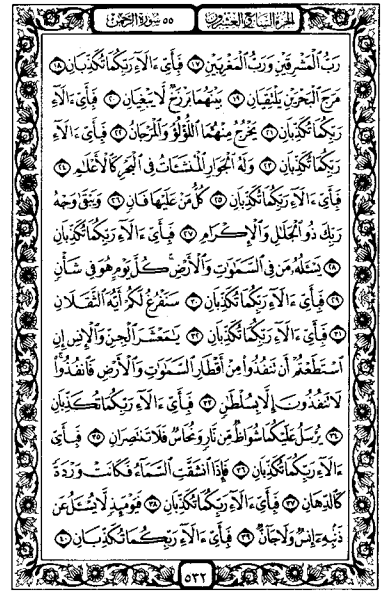 الجزء السابع العشرون ٥٥ سورة الرحمن
رَبُّ ٱلْمَشْرِقَيْنِ وَرَبُّ ٱلْمَغْرِبَيْنِ ١٧ فَبِأَىِّ ءَالَآءِ رَبِّكُمَا تُكَذِّبَانِ ١٨
مَرَجَ ٱلْبَحْرَيْنِ يَلْتَقِيَانِ ١٩ بَيْنَهُمَا بَرْزَخٌ لَّا يَبْغِيَانِ ٢٠ فَبِأَىِّ ءَالَآءِ
رَبِّكُمَا تُكَذِّبَانِ ٢١ يَخْرُجُ مِنْهُمَا ٱللُّؤْلُؤُ وَٱلْمَرْجَانُ ٢٢ فَبِأَىِّ ءَالَآءِ
رَبِّكُمَا تُكَذِّبَانِ ٢٣ وَلَهُ ٱلْجَوَارِ ٱلْمُنشَـَٔاتُ فِى ٱلْبَحْرِ كَٱلْأَعْلَٰمِ ٢٤
فَبِأَىِّ ءَالَآءِ رَبِّكُمَا تُكَذِّبَانِ ٢٥ كُلُّ مَنْ عَلَيْهَا فَانٍ ٢٦ وَيَبْقَىٰ وَجْهُ
رَبِّكَ ذُو ٱلْجَلَٰلِ وَٱلْإِكْرَامِ ٢٧ فَبِأَىِّ ءَالَآءِ رَبِّكُمَا تُكَذِّبَانِ
٢٨ يَسْـَٔلُهُۥ مَن فِى ٱلسَّمَٰوَٰتِ وَٱلْأَرْضِ ۚ كُلَّ يَوْمٍ هُوَ فِى شَأْنٍ
٢٩ فَبِأَىِّ ءَالَآءِ رَبِّكُمَا تُكَذِّبَانِ ٣٠ سَنَفْرُغُ لَكُمْ أَيُّهَ ٱلثَّقَلَانِ
٣١ فَبِأَىِّ ءَالَآءِ رَبِّكُمَا تُكَذِّبَانِ ٣٢ يَٰمَعْشَرَ ٱلْجِنِّ وَٱلْإِنسِ إِنِ
ٱسْتَطَعْتُمْ أَن تَنفُذُوا۟ مِنْ أَقْطَارِ ٱلسَّمَٰوَٰتِ وَٱلْأَرْضِ فَٱنفُذُوا۟ ۚ
لَا تَنفُذُونَ إِلَّا بِسُلْطَٰنٍ ٣٣ فَبِأَىِّ ءَالَآءِ رَبِّكُمَا تُكَذِّبَانِ
٣٤ يُرْسَلُ عَلَيْكُمَا شُوَاظٌ مِّن نَّارٍ وَنُحَاسٌ فَلَا تَنتَصِرَانِ ٣٥ فَبِأَىِّ
ءَالَآءِ رَبِّكُمَا تُكَذِّبَانِ ٣٦ فَإِذَا ٱنشَقَّتِ ٱلسَّمَآءُ فَكَانَتْ وَرْدَةً
كَٱلدِّهَانِ ٣٧ فَبِأَىِّ ءَالَآءِ رَبِّكُمَا تُكَذِّبَانِ ٣٨ فَيَوْمَئِذٍ لَّا يُسْـَٔلُ عَن
ذَنۢبِهِۦٓ إِنسٌ وَلَا جَآنٌّ ٣٩ فَبِأَىِّ ءَالَآءِ رَبِّكُمَا تُكَذِّبَانِ ٤٠
٥٣٢